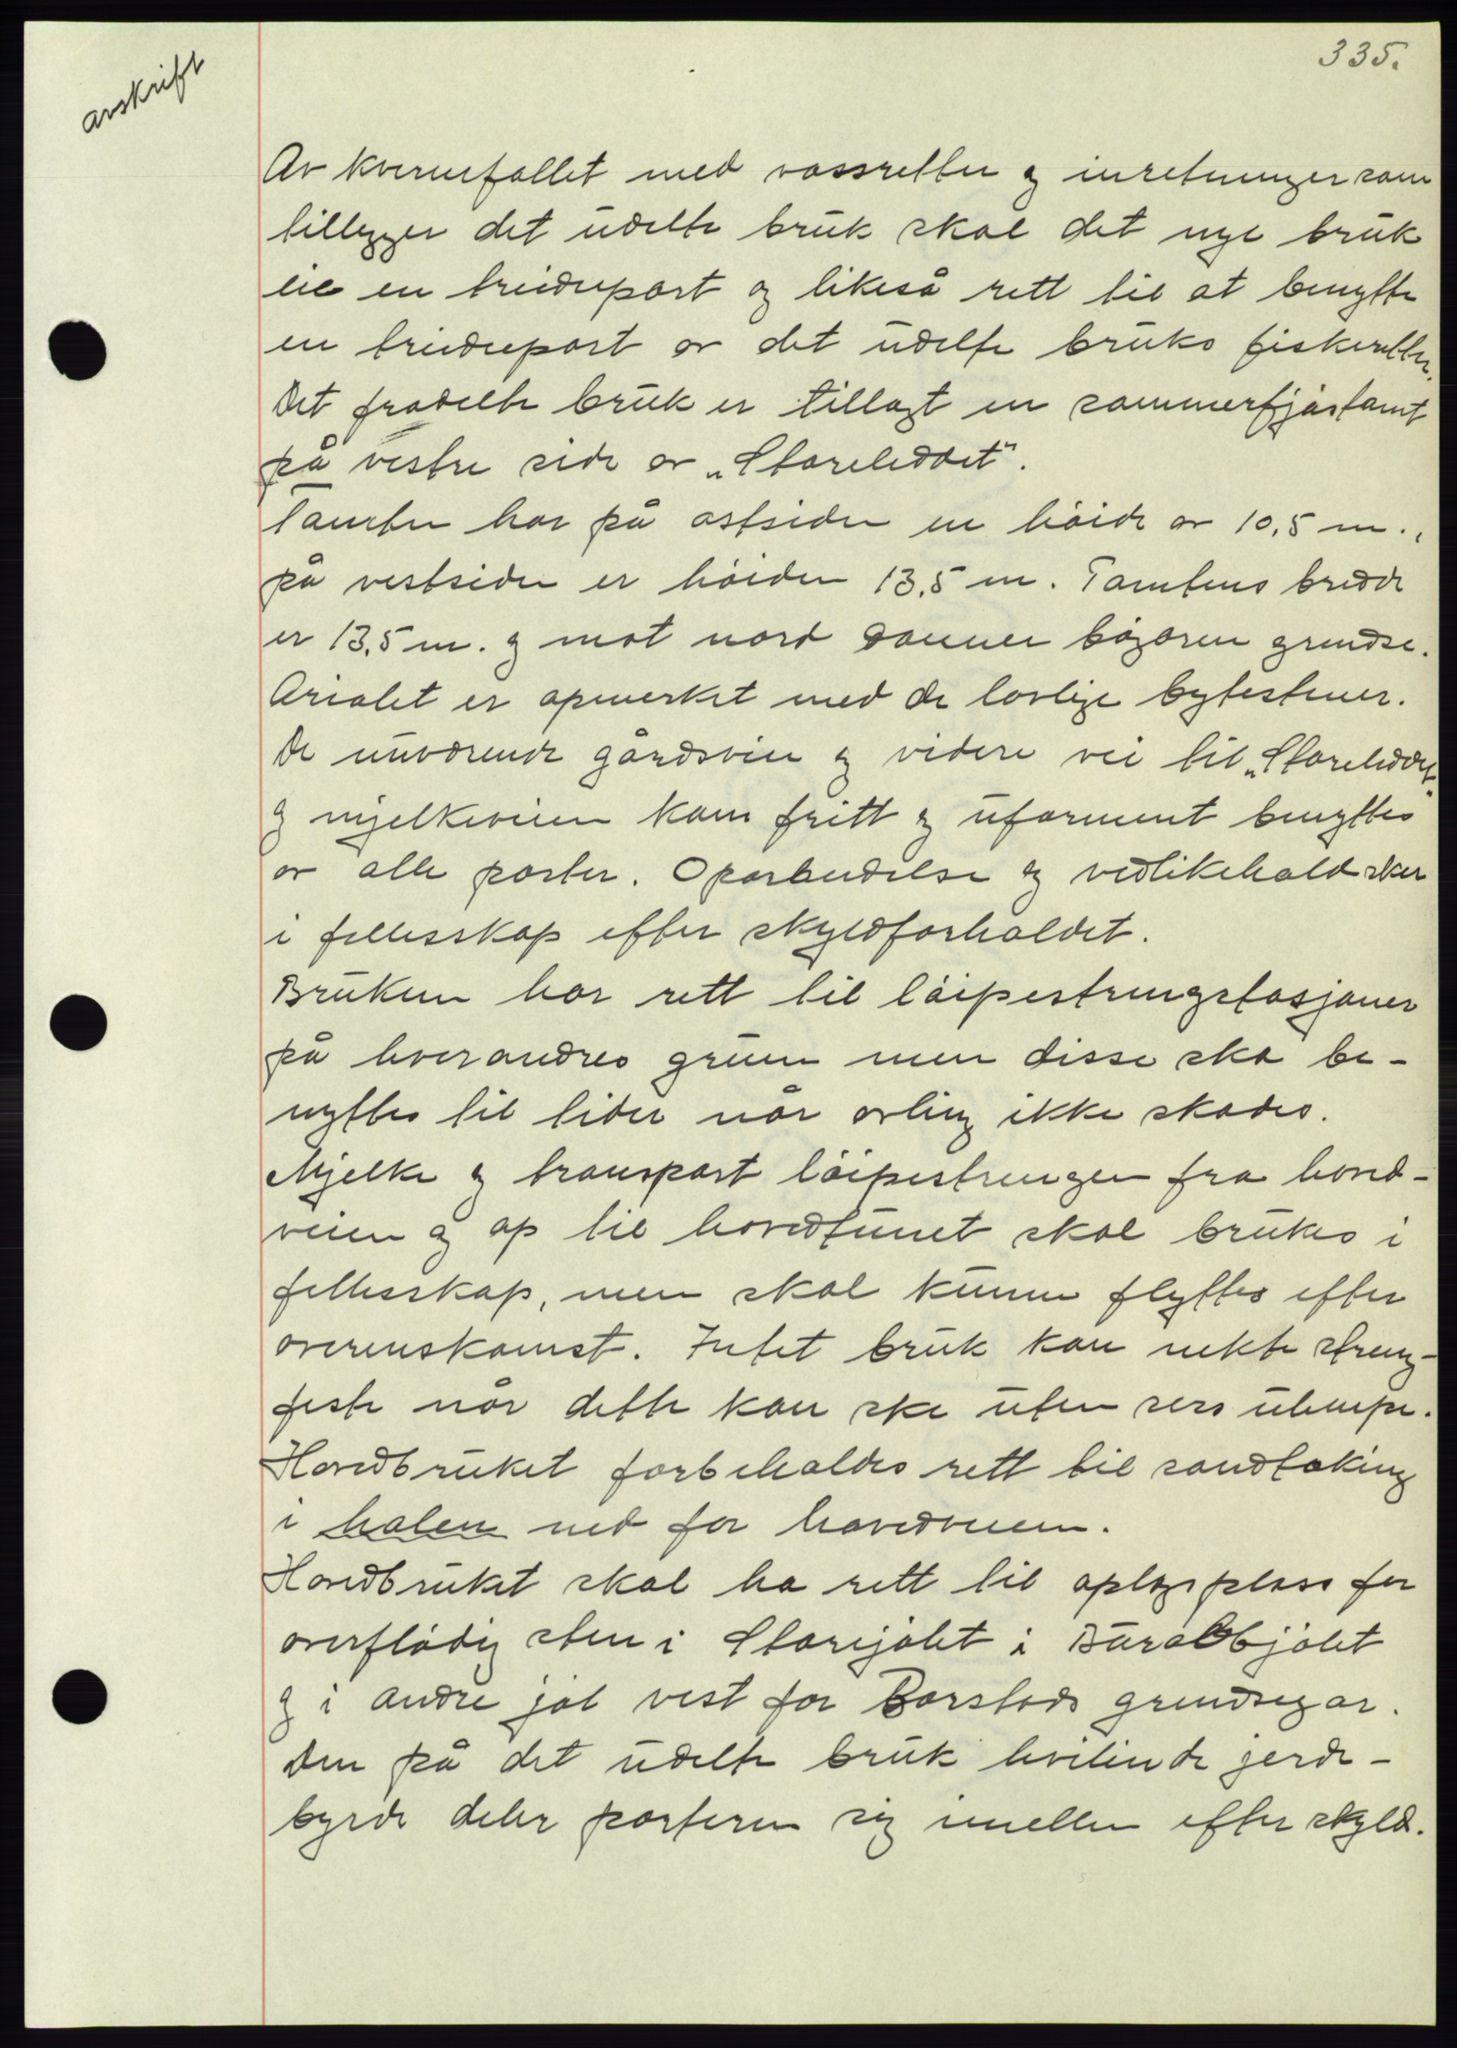 335.
avskrift
Av kvernefallet med vassretter og inretninger som
tillegger det udelte bruk skal det nye bruk
eie en triedepart og likeså rett til at benytte
en triedepart av det udelte bruks fiskeretter.
Det fradelte bruk er tillagt en sommerfjøstomt
på vestre side av „Storeleddet".
Tomten har på ostsiden en höide av 10,5 m.,
på vestsiden er höiden 13,5 m. Tomtens bredde
er 13,5 m. og mot nord danner bögaren grendse.
Arialet er opmerket med de lovlige bytestener.
De nuværende gårdsveie og videre vei til „Storeleddet"
og mjelkeveien kan fritt og uforment benyttes
av alle parter. Oparbeidelse og vedlikehold sker
i fellesskap efter skyldforholdet.
Bruken har rett til löipestrengstasjoner
på hverandres grunn men disse ska be-
nyttes til tider når avling ikke skades.
Mjelke og transport löipestrengen fra hoved-
veien og op til hovedtunet skal brukes i
fellesskap, men skal kunne flyttes efter
overenskomst. Intet bruk kan nekte streng-
feste når dette kan ske uten sers ulempe.
Hovedbruket forbeholdes rett til sandtaking
i holen ned for hovedveien.
Hovedbruket skal ha rett til oplagsplass for
overflödig sten i Storejölet i
og i andre jöl vest for Borstads grendsegar.
Den på det udelte bruk hvilende jorde-
byrde deler parteren sig imellen efter skyld.